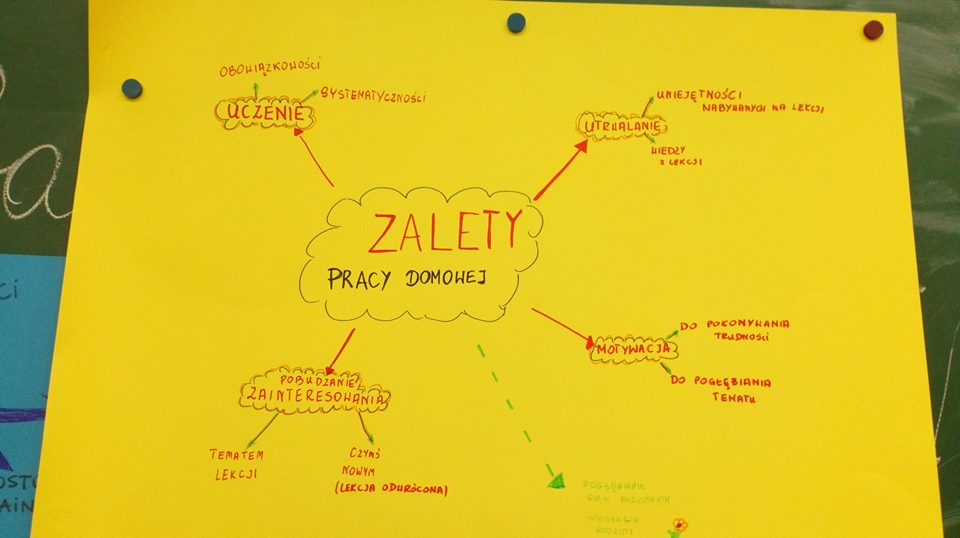 ZALETY
PRACY DOMOWEJ
UCZENIE
OBOWIĄZKOWOŚCI
SYSTEMATYCZNOŚCI
UTRWALANIE
UMIEJĘTNOŚCI
NABYWANYCH NA LEKCJI
WIEDZY
Z LEKCJI
MOTYWACJA
DO POKONYWANIA
TRUDNOŚCI
DO POGŁĘBIANIA
TEMATU
POBUDZANIE
ZAINTERESOWANIA
TEMATEM
LEKCJI
CZYMŚ
NOWYM
(LEKCJA ODWRÓCONA)
POGŁĘBIANIE
WIĘZI RODZINNYCH
INTEGRACJA
RODZINY